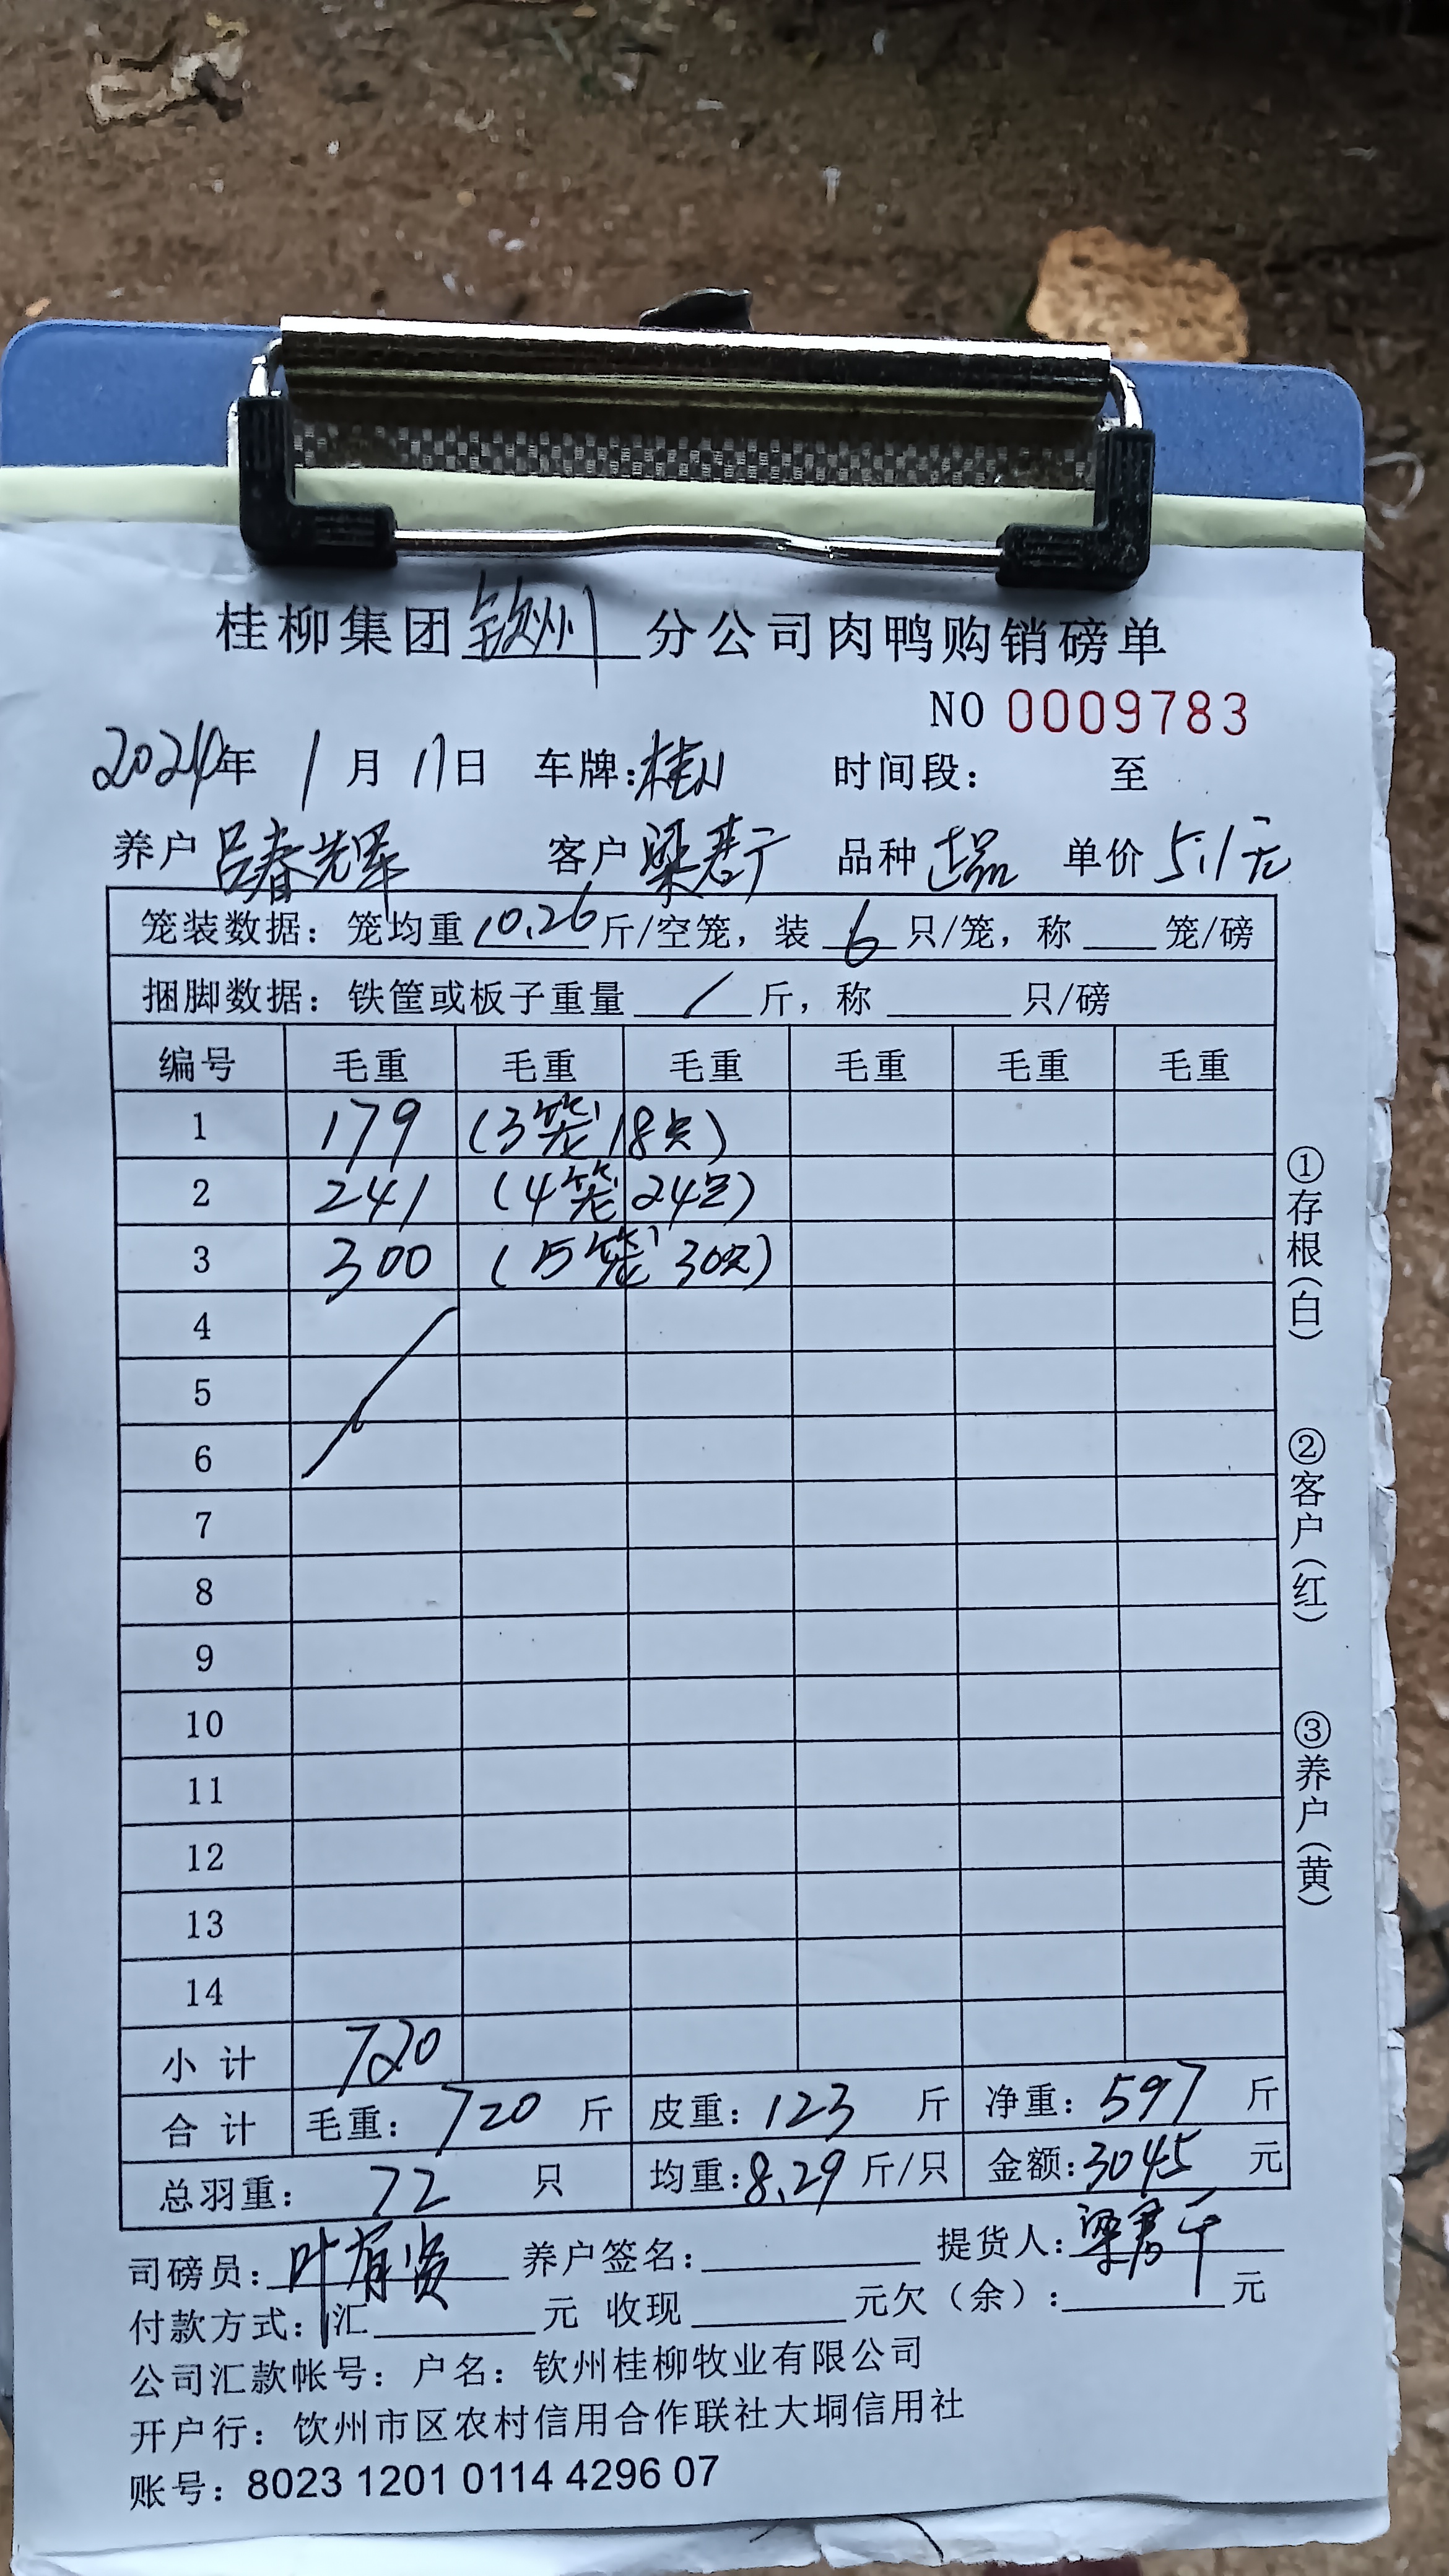 桂柳集团钦州分公司肉鸭购销磅单
NO 0009783
2024年 1月 17日 车牌: 时间段: 至
养户 吕春辉 客户 品种 单价 5.1元
笼装数据: 笼均重 10.26 斤/空笼, 装 6 只/笼, 称 笼/磅
捆脚数据: 铁筐或板子重量 / 斤, 称 只/磅
编号 毛重 毛重 毛重 毛重 毛重 毛重
1 179 (3笼 18只)
2 241 (4笼 24只)
3 300 (5笼 30只)
4
5
6
7
8
9
10
11
12
13
14
小计 720
合计 毛重: 720 斤 皮重: 123 斤 净重: 597 斤
总羽重: 72 只 均重: 8.29 斤/只 金额: 3045 元
司磅员: 养户签名: 提货人:
付款方式: 汇 元 收现 元欠(余): 元
公司汇款帐号: 户名: 钦州桂柳牧业有限公司
开户行: 钦州市区农村信用合作联社大垌信用社
账号: 8023 1201 0114 4296 07
①存根(白)
②客户(红)
③养户(黄)